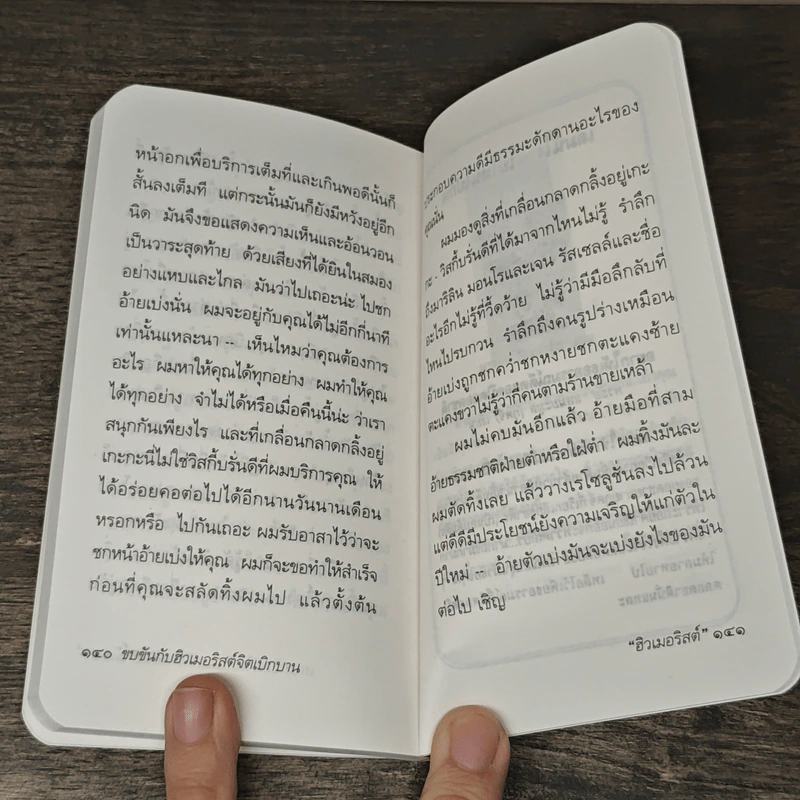 หน้าอกเพื่อบริการเต็มที่และเกินพอดีนั้นก็
สั้นลงเต็มที แต่กระนั้นมันก็ยังมีหวังอยู่อีก
นิด มันจึงขอแสดงความเห็นและอ้อนวอน
เป็นวาระสุดท้าย ด้วยเสียงที่ได้ยินในสมอง
อย่างแหบและไกล มันว่าไปเถอะน่ะ ไปชก
อ้ายเบ่งนั่น ผมจะอยู่กับคุณได้ไม่อีกกี่นาที
เท่านั้นแหละนา -- เห็นไหมว่าคุณต้องการ
อะไร ผมหาให้คุณได้ทุกอย่าง ผมทำให้คุณ
ได้ทุกอย่าง จำไม่ได้หรือเมื่อคืนนี้น่ะ ว่าเรา
สนุกกันเพียงไร และที่เกลื่อนกลาดกลิ้งอยู่
เกะกะนี่ไม่ใช่วิสกี้บรั่นดีที่ผมบริการคุณ ให้
ได้อร่อยคอต่อไปได้อีกนานวันนานเดือน
หรอกหรือ ไปกันเถอะ ผมรับอาสาไว้ว่าจะ
ชกหน้าอ้ายเบ่งให้คุณ ผมก็จะขอทำให้สำเร็จ
ก่อนที่คุณจะสลัดทิ้งผมไป แล้วตั้งต้น
๑๔๐ ขบขันกับฮิวเมอริสต์จิตเบิกบาน
ประกอบความดีมีธรรมะดักดานอะไรของ
คุณนั่น
ผมมองดูสิ่งที่เกลื่อนกลาดกลิ้งอยู่เกะ
กะ วิสกี้บรั่นดีที่ได้มาจากไหนไม่รู้ รำลึก
ถึงมาริลิน มอนโรและเจน รัสเซลล์และชื่อ
อะไรอีกไม่รู้ที่วี้ดว้าย ไม่รู้ว่ามีมือลึกลับที่
ไหนไปรบกวน รำลึกถึงคนรูปร่างเหมือน
อ้ายเบ่งถูกชกคว่ำชกหงายชกตะแคงซ้าย
ตะแคงขวาไม่รู้ว่ากี่คนตามร้านขายเหล้า
ผมไม่คบมันอีกแล้ว อ้ายมือที่สาม
อ้ายธรรมชาติฝ่ายต่ำหรือใฝ่ต่ำ ผมทิ้งมันละ
ผมตัดทิ้งเลย แล้ววางเรโซลูชั่นลงไปล้วน
แต่ดีดีมีประโยชน์ยังความเจริญให้แก่ตัวใน
ปีใหม่ -- อ้ายตัวเบ่งมันจะเบ่งยังไงของมัน
ต่อไป เชิญ
“ฮิวเมอริสต์” ๑๔๑